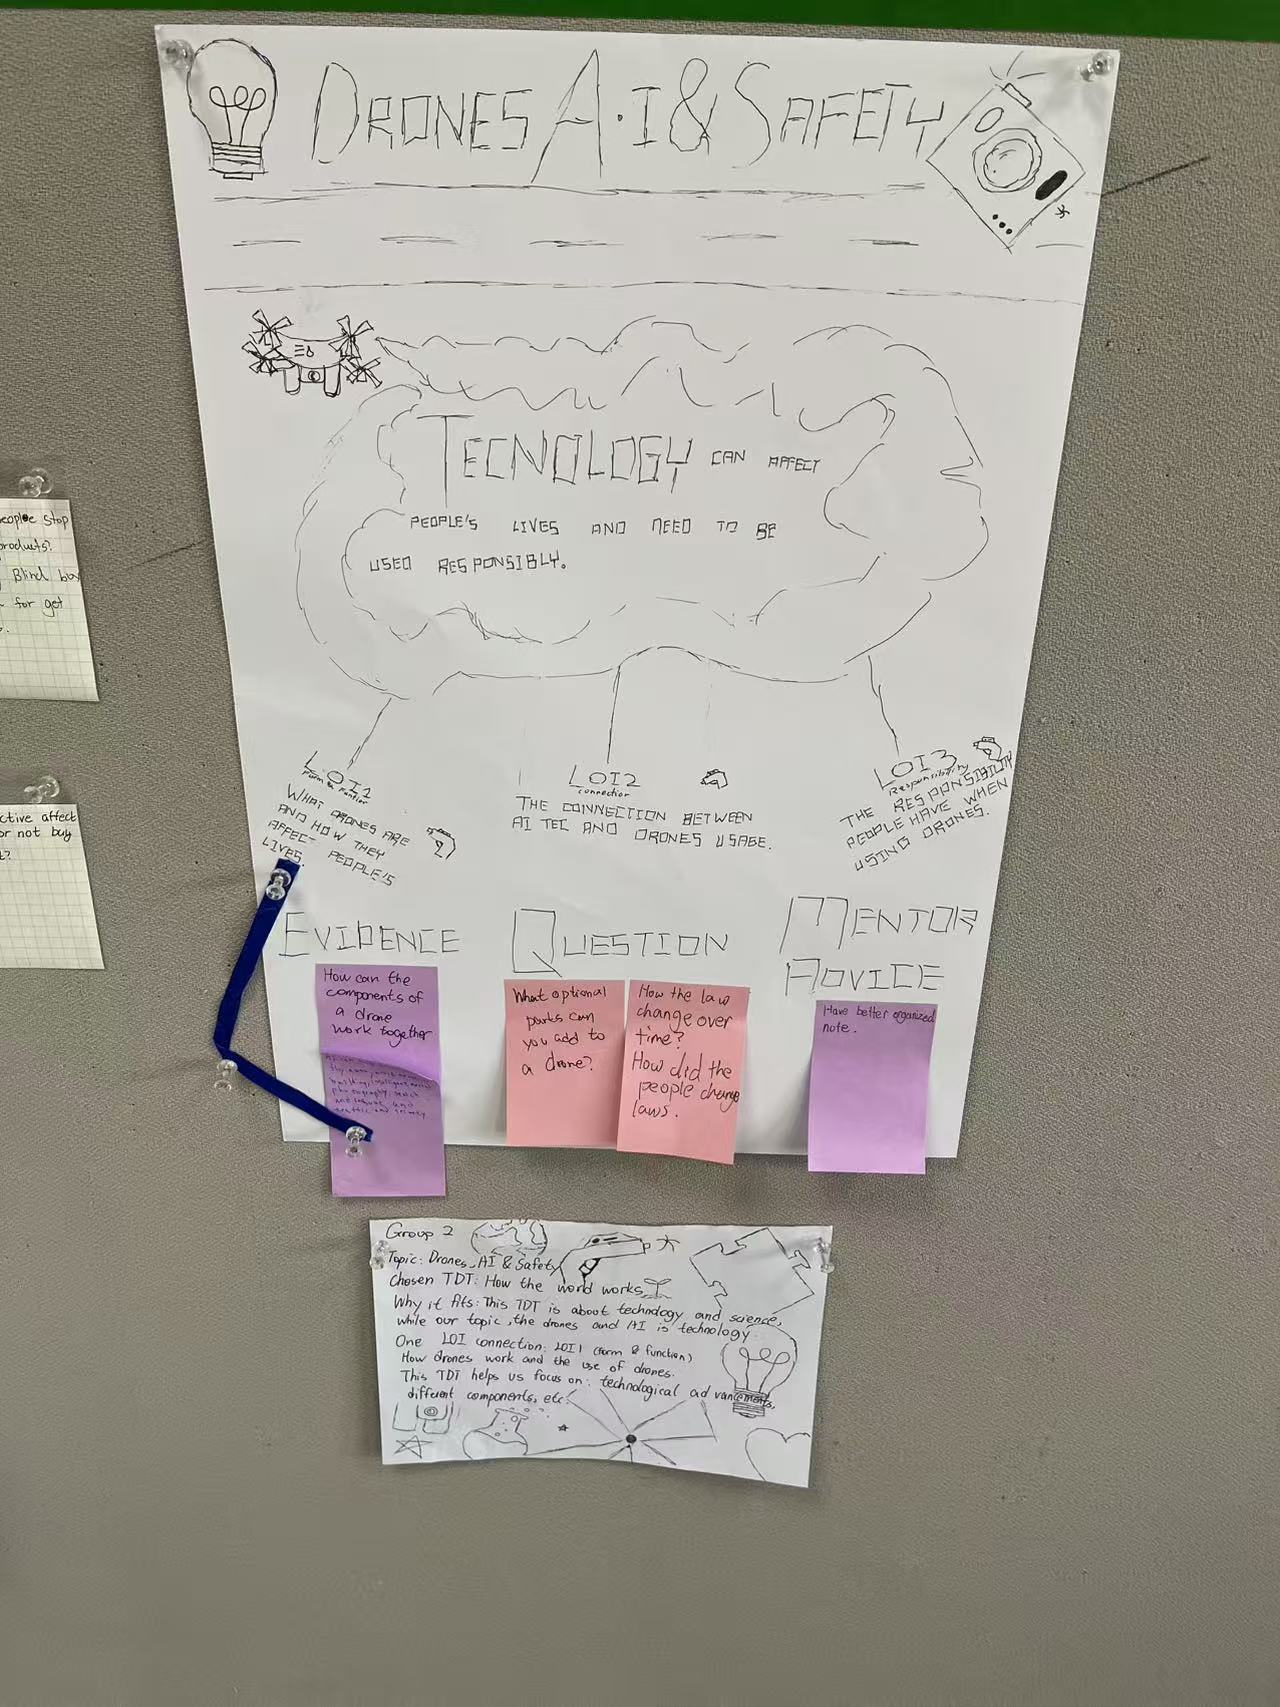 DRONES A.I & SAFETY
TECNOLOGY CAN AFFECT
PEOPLE'S LIVES AND NEED TO BE
USED RESPONSIBLY.
LOI1
WHAT DRONES ARE
AND HOW THEY
AFFECT PEOPLE'S
LIVES.
LOI2
connection
THE CONNECTION BETWEEN
AI TEC AND DRONES USAGE.
LOI3
Responsibility
THE RESPONSIBILITY
PEOPLE HAVE WHEN
USING DRONES.
EVIDENCE
How can the
components of
a drone
work together
QUESTION
What optional
parts can
you add to
a drone?
How the law
change over
time?
How did the
people change
laws.
MENTOR
ADVICE
Have better organized
note.
Group 2
Topic: Drones, AI & Safety
Chosen TDT: How the world works
Why it fits: This TDT is about technology and science,
while our topic, the drones and AI is technology.
One LOI connection: LOI1 (form & function)
How drones work and the use of drones.
This TDT helps us focus on: technological advancements,
different components, etc!
eople stop
products?
Blind box
for get
ctive affect
or not buy
t?